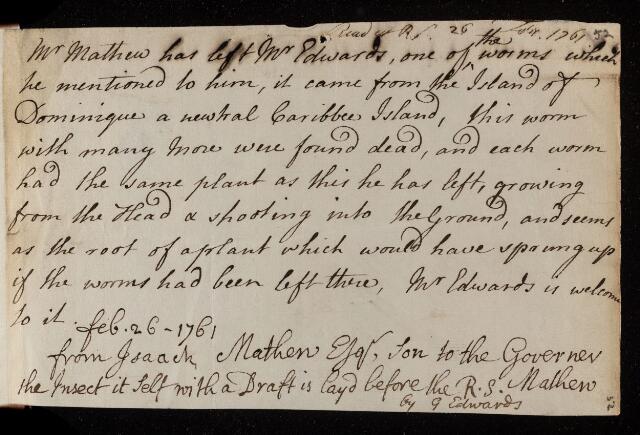 Read at R.S. 26 Febr. 1761 52
Mr Mathew has left Mr Edwards, one of the worms which
he mentioned to him, it came from the Island of
Dominique a newtral Caribbee Island, this worm
with many More were found dead, and each worm
had the same plant as this he has left, growing
from the Head & shooting into the Ground, and seems
as the root of a plant which would have sprung up
if the worms had been left there, Mr Edwards is welcome
to it. feb. 26 - 1761
from Isaack Mathew Esqr, Son to the Governer
the Insect it Self with a Draft is lay'd before the R. S. Mathew
by G Edwards
52